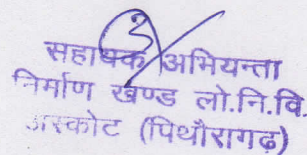 सहायक अभियन्ता
निर्माण खण्ड लो.नि.वि.
अस्कोट (पिथौरागढ़)